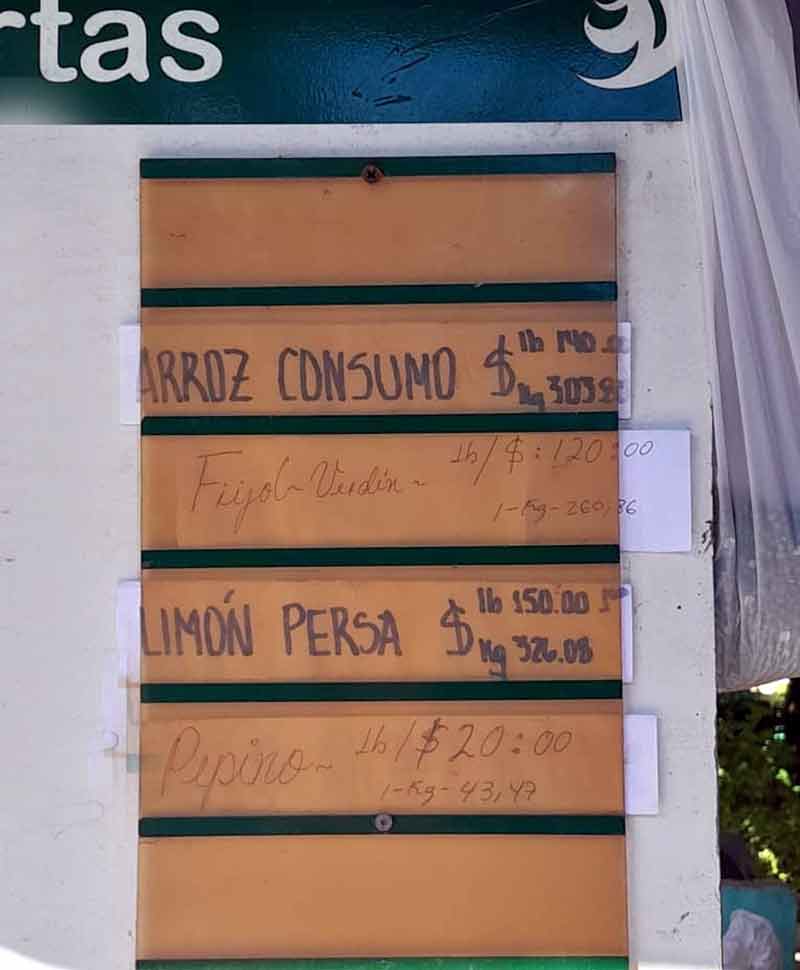 rtas
ARROZ CONSUMO $ lb 140.00
Kg 303.80
Frijol~Verdin~ lb/$:120:00
1-Kg-260,86
LIMÓN PERSA $ lb 150.00
Kg 326.08
Pepino~ lb/$20:00
1-Kg-43,47